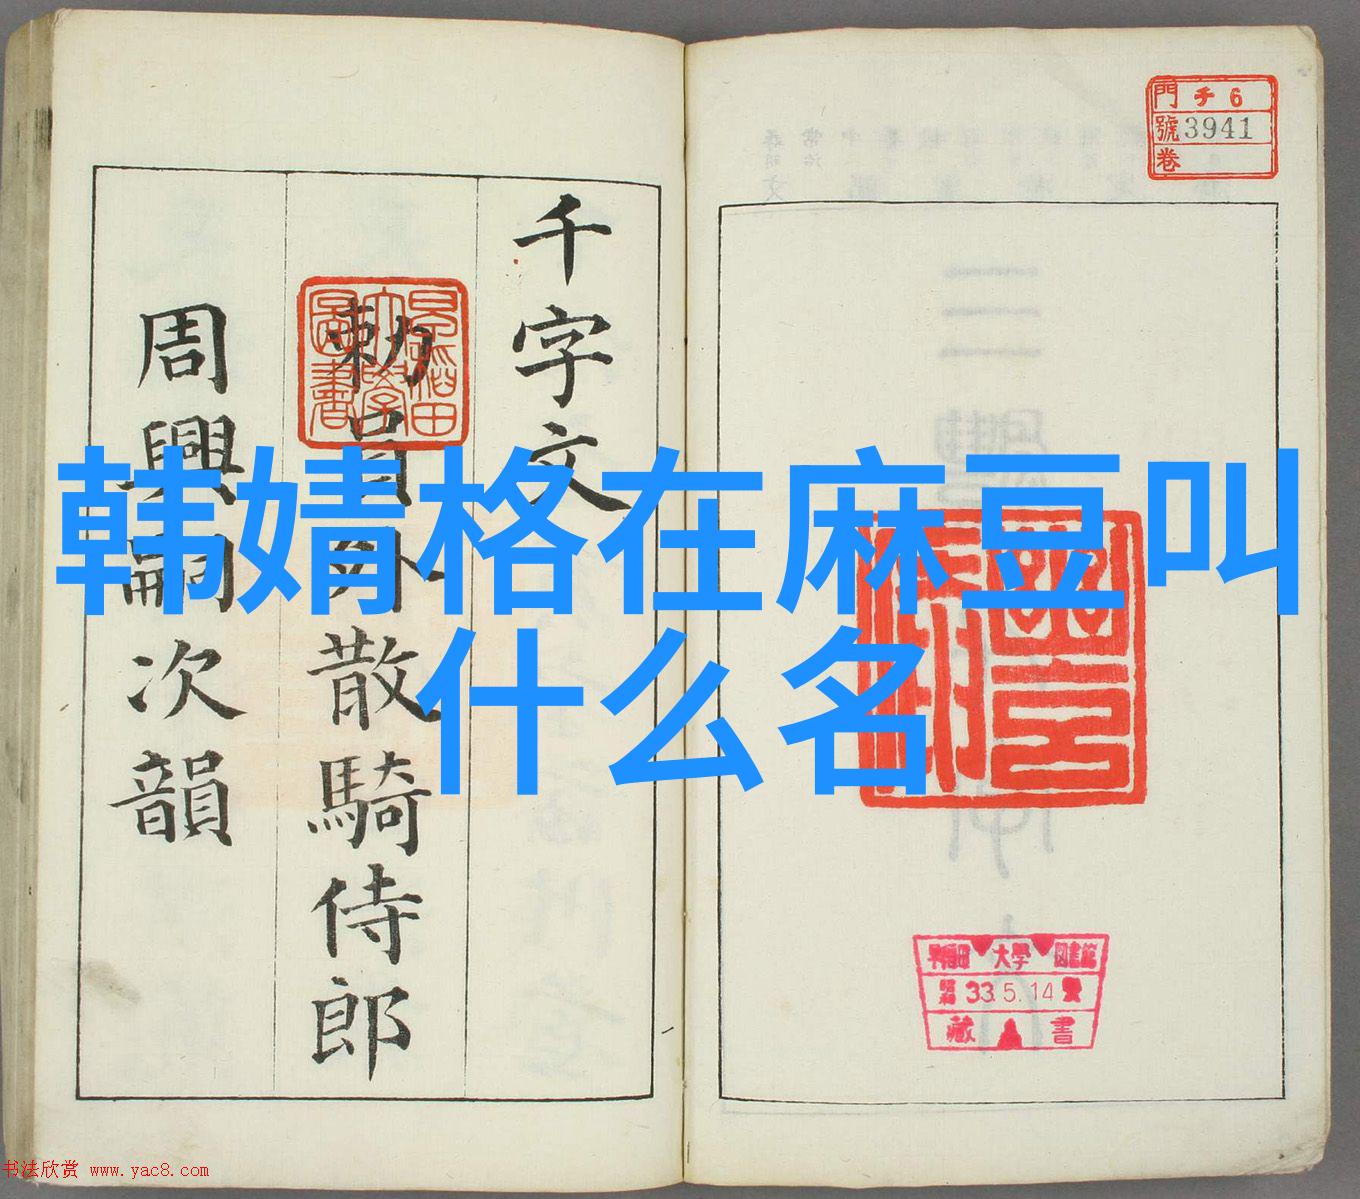 門 チ 6
號 3941
卷
千字文
勅員外散騎侍郎
周興嗣次韻
韩婧格在麻豆叫
什么名
早稲田大學圖書館
昭和 33.5.14
藏書
书法欣赏 www.yac8.com